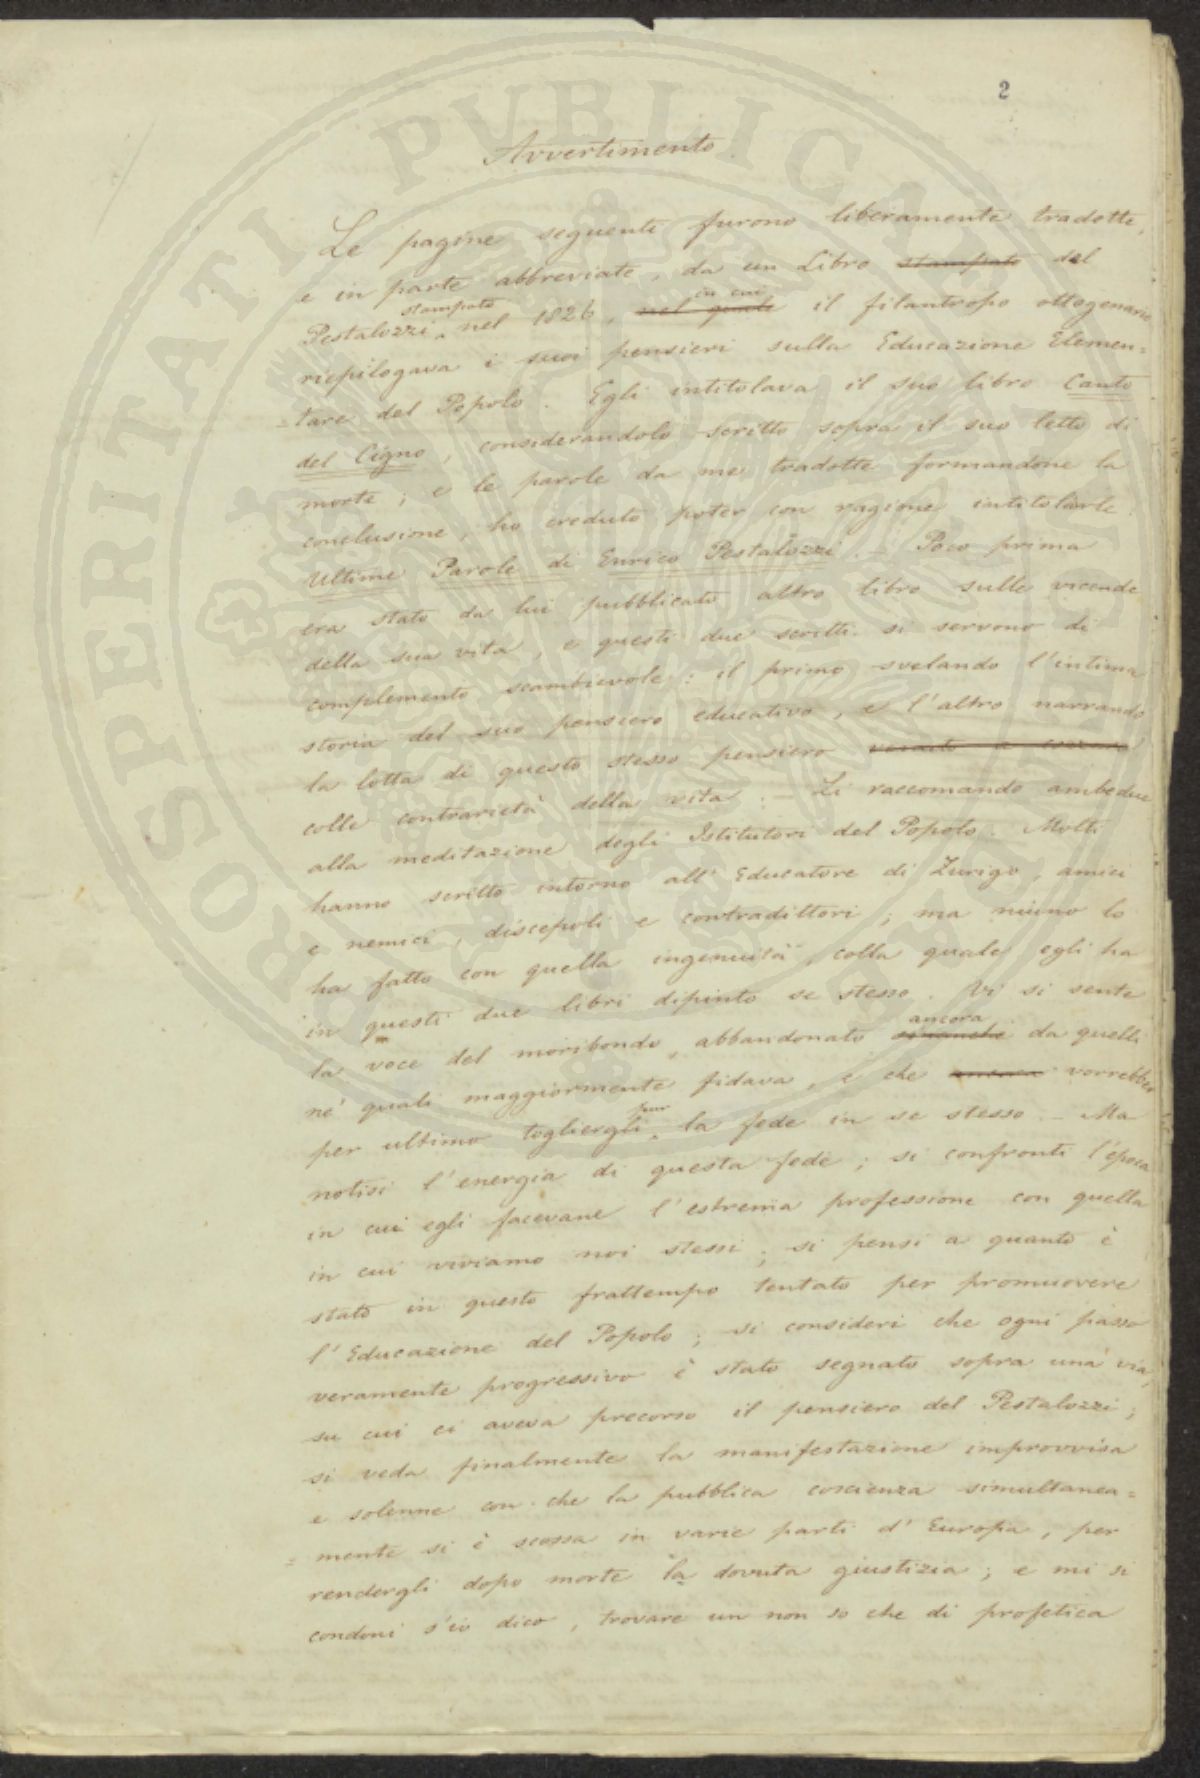 2
Avvertimento.
Le pagine seguenti furono liberamente tradotte,
e in parte abbreviate, da un Libro stampato del
stampato in cui
Pestalozzi nel 1826, nel quale il filantropo ottogenario
riepilogava i suoi pensieri sulla Educazione Elemen=
=tare del Popolo. Egli intitolava il suo libro Canto
del Cigno, considerandolo scritto sopra il suo letto di
morte; e le parole da me tradotte formandone la
conclusione, ho creduto poter con ragione intitolarle
Ultime Parole di Enrico Pestalozzi. – Poco prima
era stato da lui pubblicato altro libro sulle vicende
della sua vita, e questi due scritti si servono di
complemento scambievole: il primo svelando l'intima
storia del suo pensiero educativo, e l'altro narrando
la lotta di questo stesso pensiero
colle contrarietà della vita. – Li raccomando ambedue
alla meditazione degli Istitutori del Popolo. Molti
hanno scritto intorno all'Educatore di Zurigo, amici
e nemici, discepoli e contradittori; ma niuno lo
ha fatto con quella ingenuità, colla quale egli ha
in questi due libri dipinto se stesso. Vi si sente
ancora
la voce del moribondo, abbandonato da quelli
ne' quali maggiormente fidava, e che ancora vorrebber
pur
per ultimo togliergli la fede in se stesso. – Ma
notisi l'energia di questa fede; si confronti l'epoca
in cui egli facevane l'estrema professione con quella
in cui viviamo noi stessi; si pensi a quanto è
stato in questo frattempo tentato per promuovere
l'Educazione del Popolo; si consideri che ogni passo
veramente progressivo è stato segnato sopra una via,
su cui ci aveva precorso il pensiero del Pestalozzi;
si veda finalmente la manifestazione improvvisa
e solenne con che la pubblica coscienza simultanea=
=mente si è scossa in varie parti d'Europa, per
rendergli dopo morte la dovuta giustizia; e mi si
condoni s'io dico, trovare un non so che di profetica
PROSPERITATI PVBLICAE